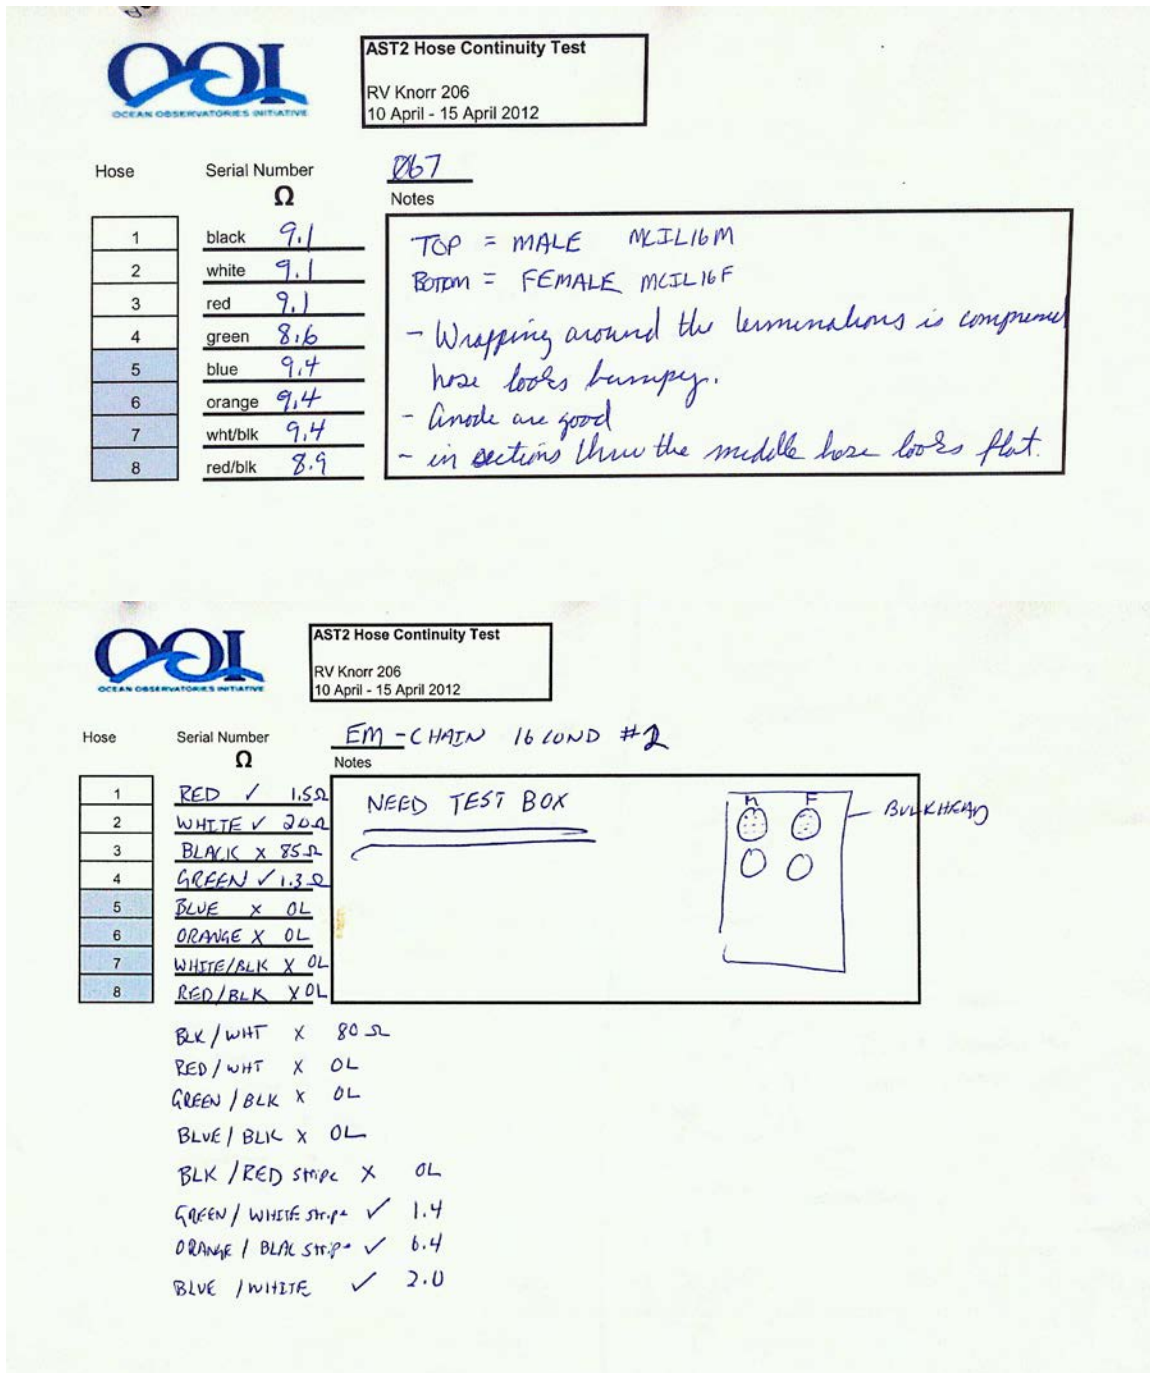 OOI
OCEAN OBSERVATORIES INITIATIVE
AST2 Hose Continuity Test
RV Knorr 206
10 April - 15 April 2012
Hose Serial Number Ø67
Ω Notes
1 black 9.1
2 white 9.1
3 red 9.1
4 green 8.6
5 blue 9.4
6 orange 9.4
7 wht/blk 9.4
8 red/blk 8.9
TOP = MALE MCIL16M
BOTTOM = FEMALE MCIL16F
- Wrapping around the terminations is compressed
hose looks bumpy.
- Anode are good
- in sections thru the middle hose looks flat.
OOI
OCEAN OBSERVATORIES INITIATIVE
AST2 Hose Continuity Test
RV Knorr 206
10 April - 15 April 2012
Hose Serial Number EM-CHAIN 16 COND #2
Ω Notes
1 RED ✓ 1.5Ω
2 WHITE ✓ 20Ω
3 BLACK X 85Ω
4 GREEN ✓ 1.3Ω
5 BLUE X OL
6 ORANGE X OL
7 WHITE/BLK X OL
8 RED/BLK X OL
NEED TEST BOX
M F
BULKHEAD
BLK/WHT X 80Ω
RED/WHT X OL
GREEN/BLK X OL
BLUE/BLK X OL
BLK/RED stripe X OL
GREEN/WHITE stripe ✓ 1.4
ORANGE/BLAC stripe ✓ 6.4
BLUE/WHITE ✓ 2.0